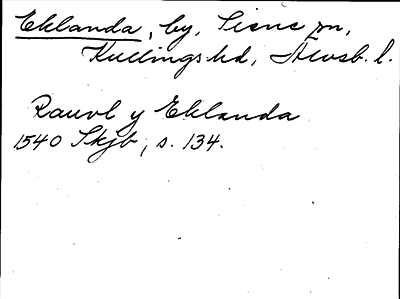 Eklanda, by, Siene sn,
Kullings hd, Älvsb. l.
Rauvl y Eklanda
1540 Skjb, s. 134.